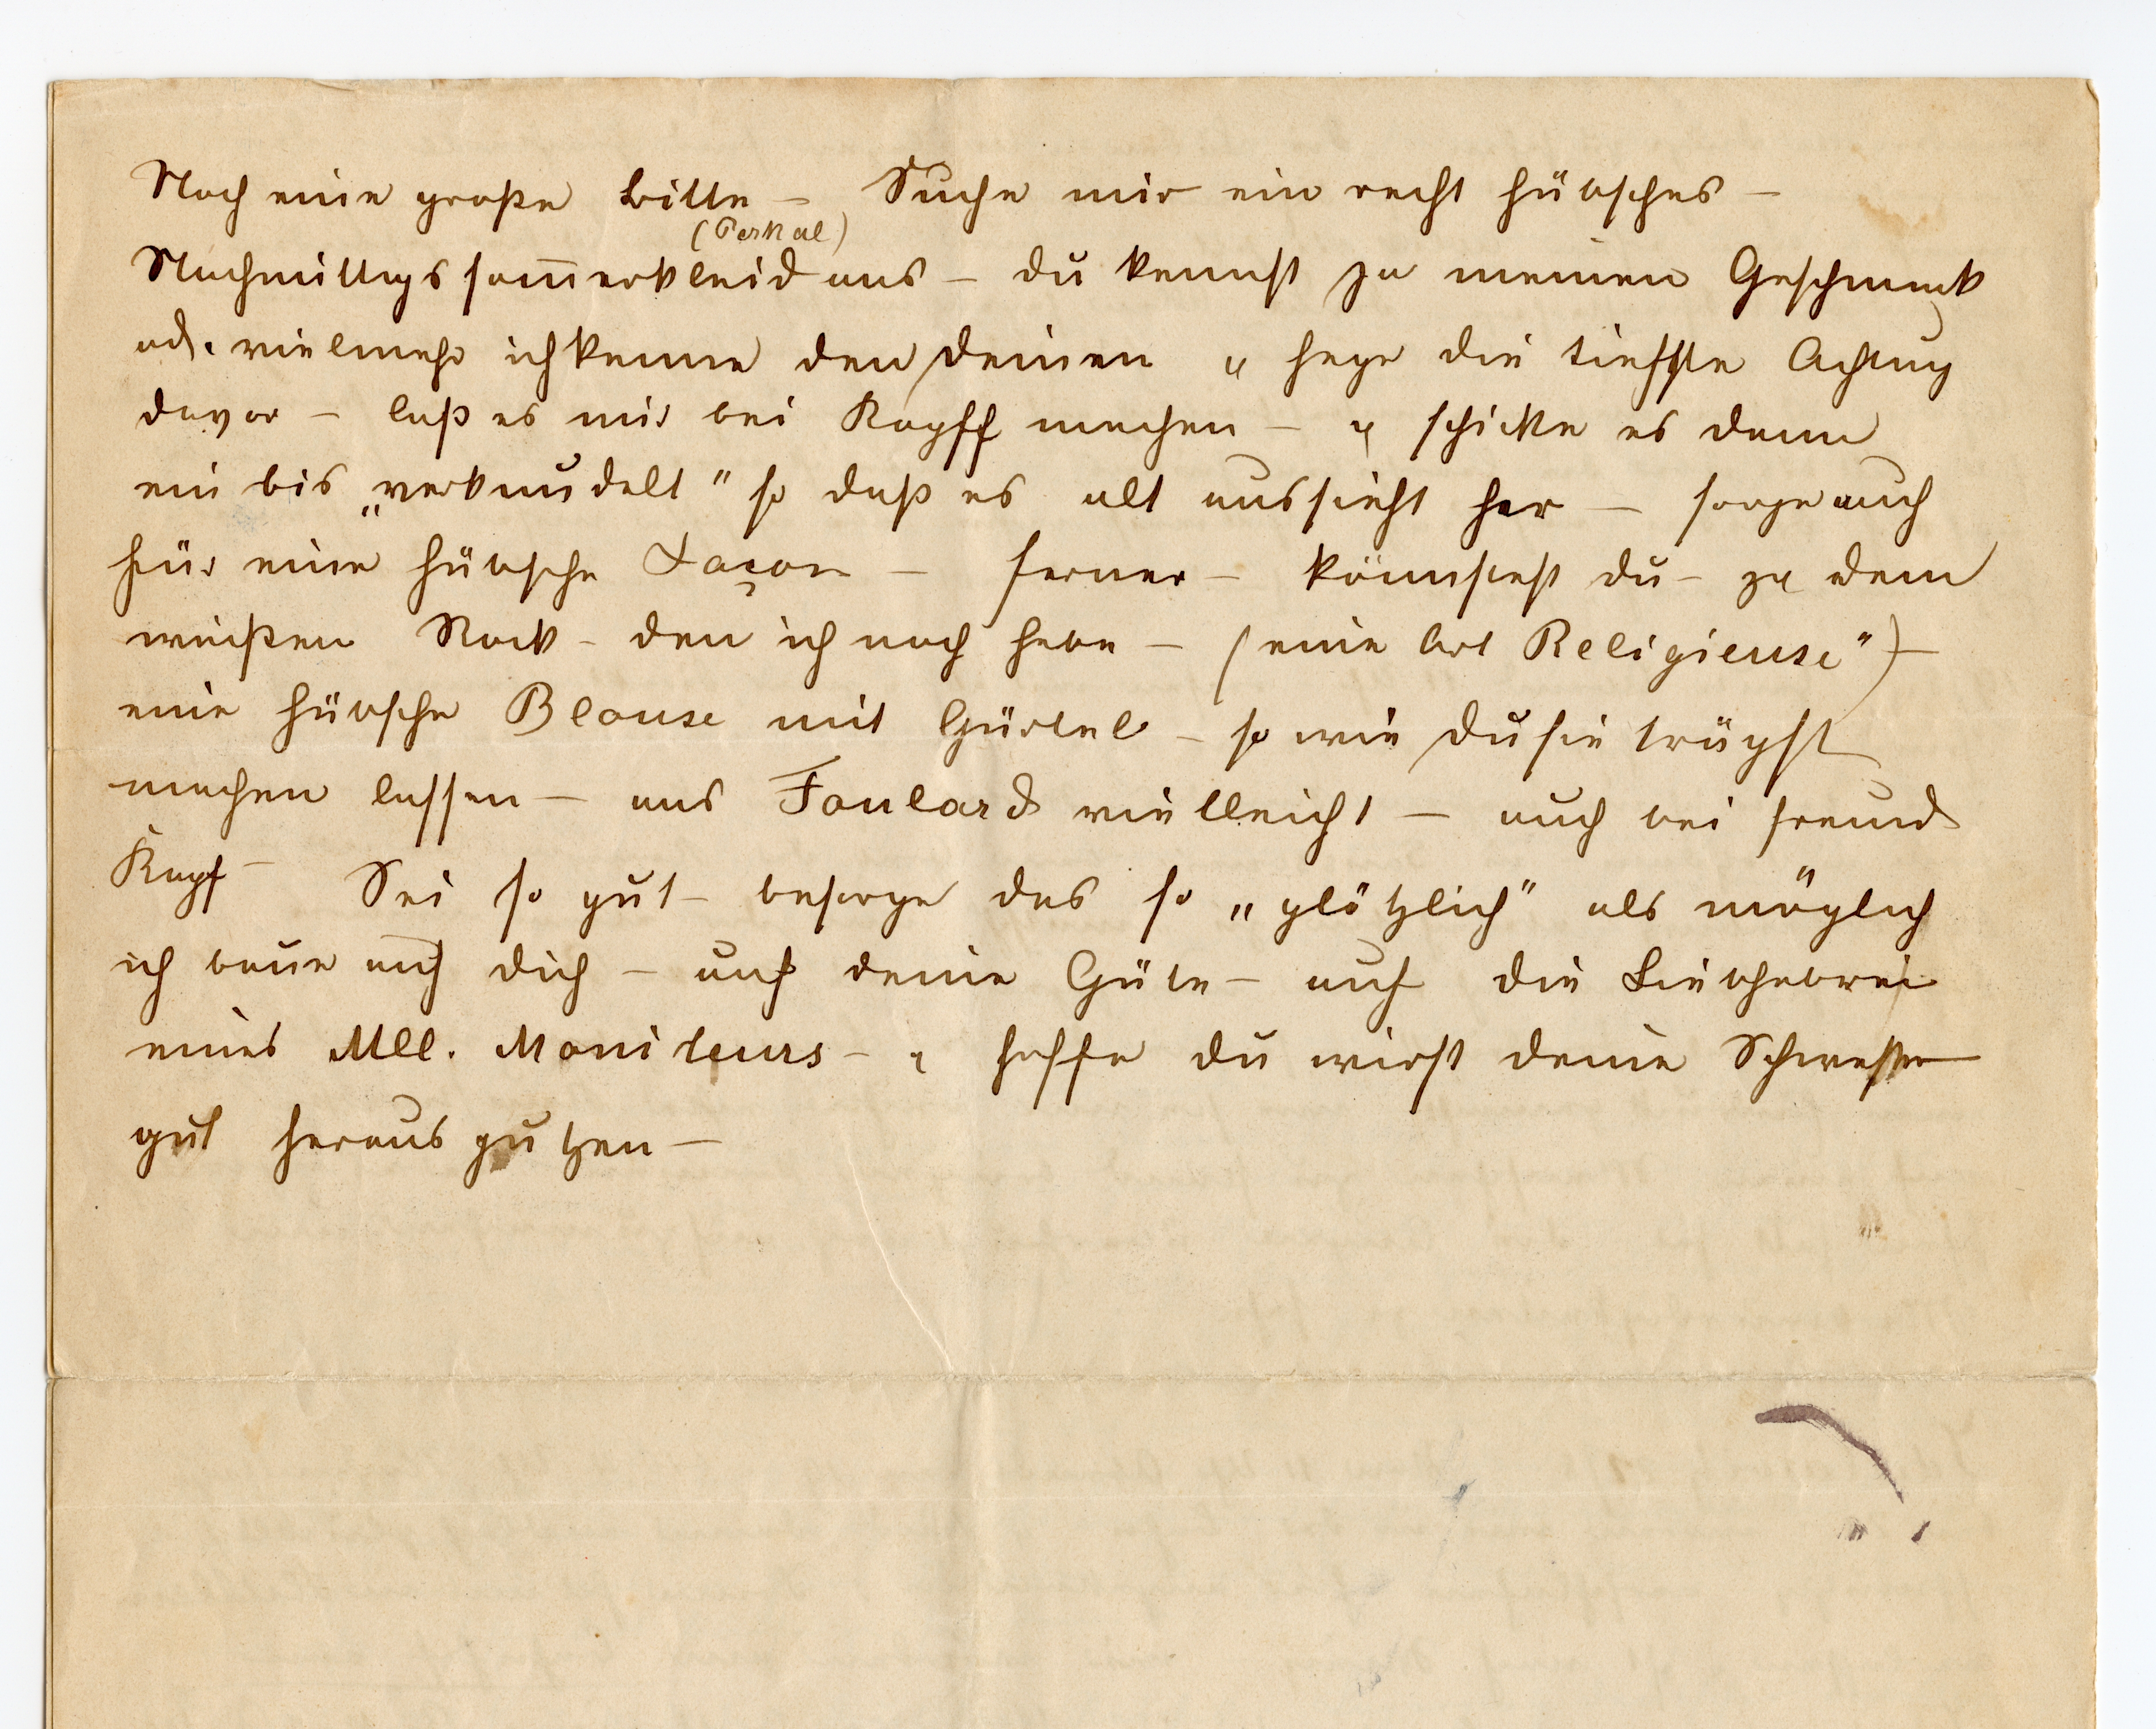 Noch eine große Bitte – Suche mir ein recht hübsches –
(Perkal)
Nachmittagssom̅erkleid aus – du kennst ja meinen Geschmack
od. vielmehr ich kenne den deinen u hege die tiefste Achtung
davor – laß es mir bei Kapff machen – u schicke es dann
ein bis „verknudelt" so daß es alt aussieht her – sorge auch
für eine hübsche Façon – ferner – könntest du – zu dem
weißen Rock – den ich noch habe – (eine Art Religieuse") –
eine hübsche Blouse mit Gürtel – so wie du sie trägst
machen lassen – aus Foulard vielleicht – auch bei Freund
Kapf – Sei so gut – besorge das so „plötzlich" als möglich
ich baue auf dich – auf deine Güte – auf die Liebhaberei
eines Mll. Moniteurs – u hoffe du wirst deine Schwester
gut herausputzen –